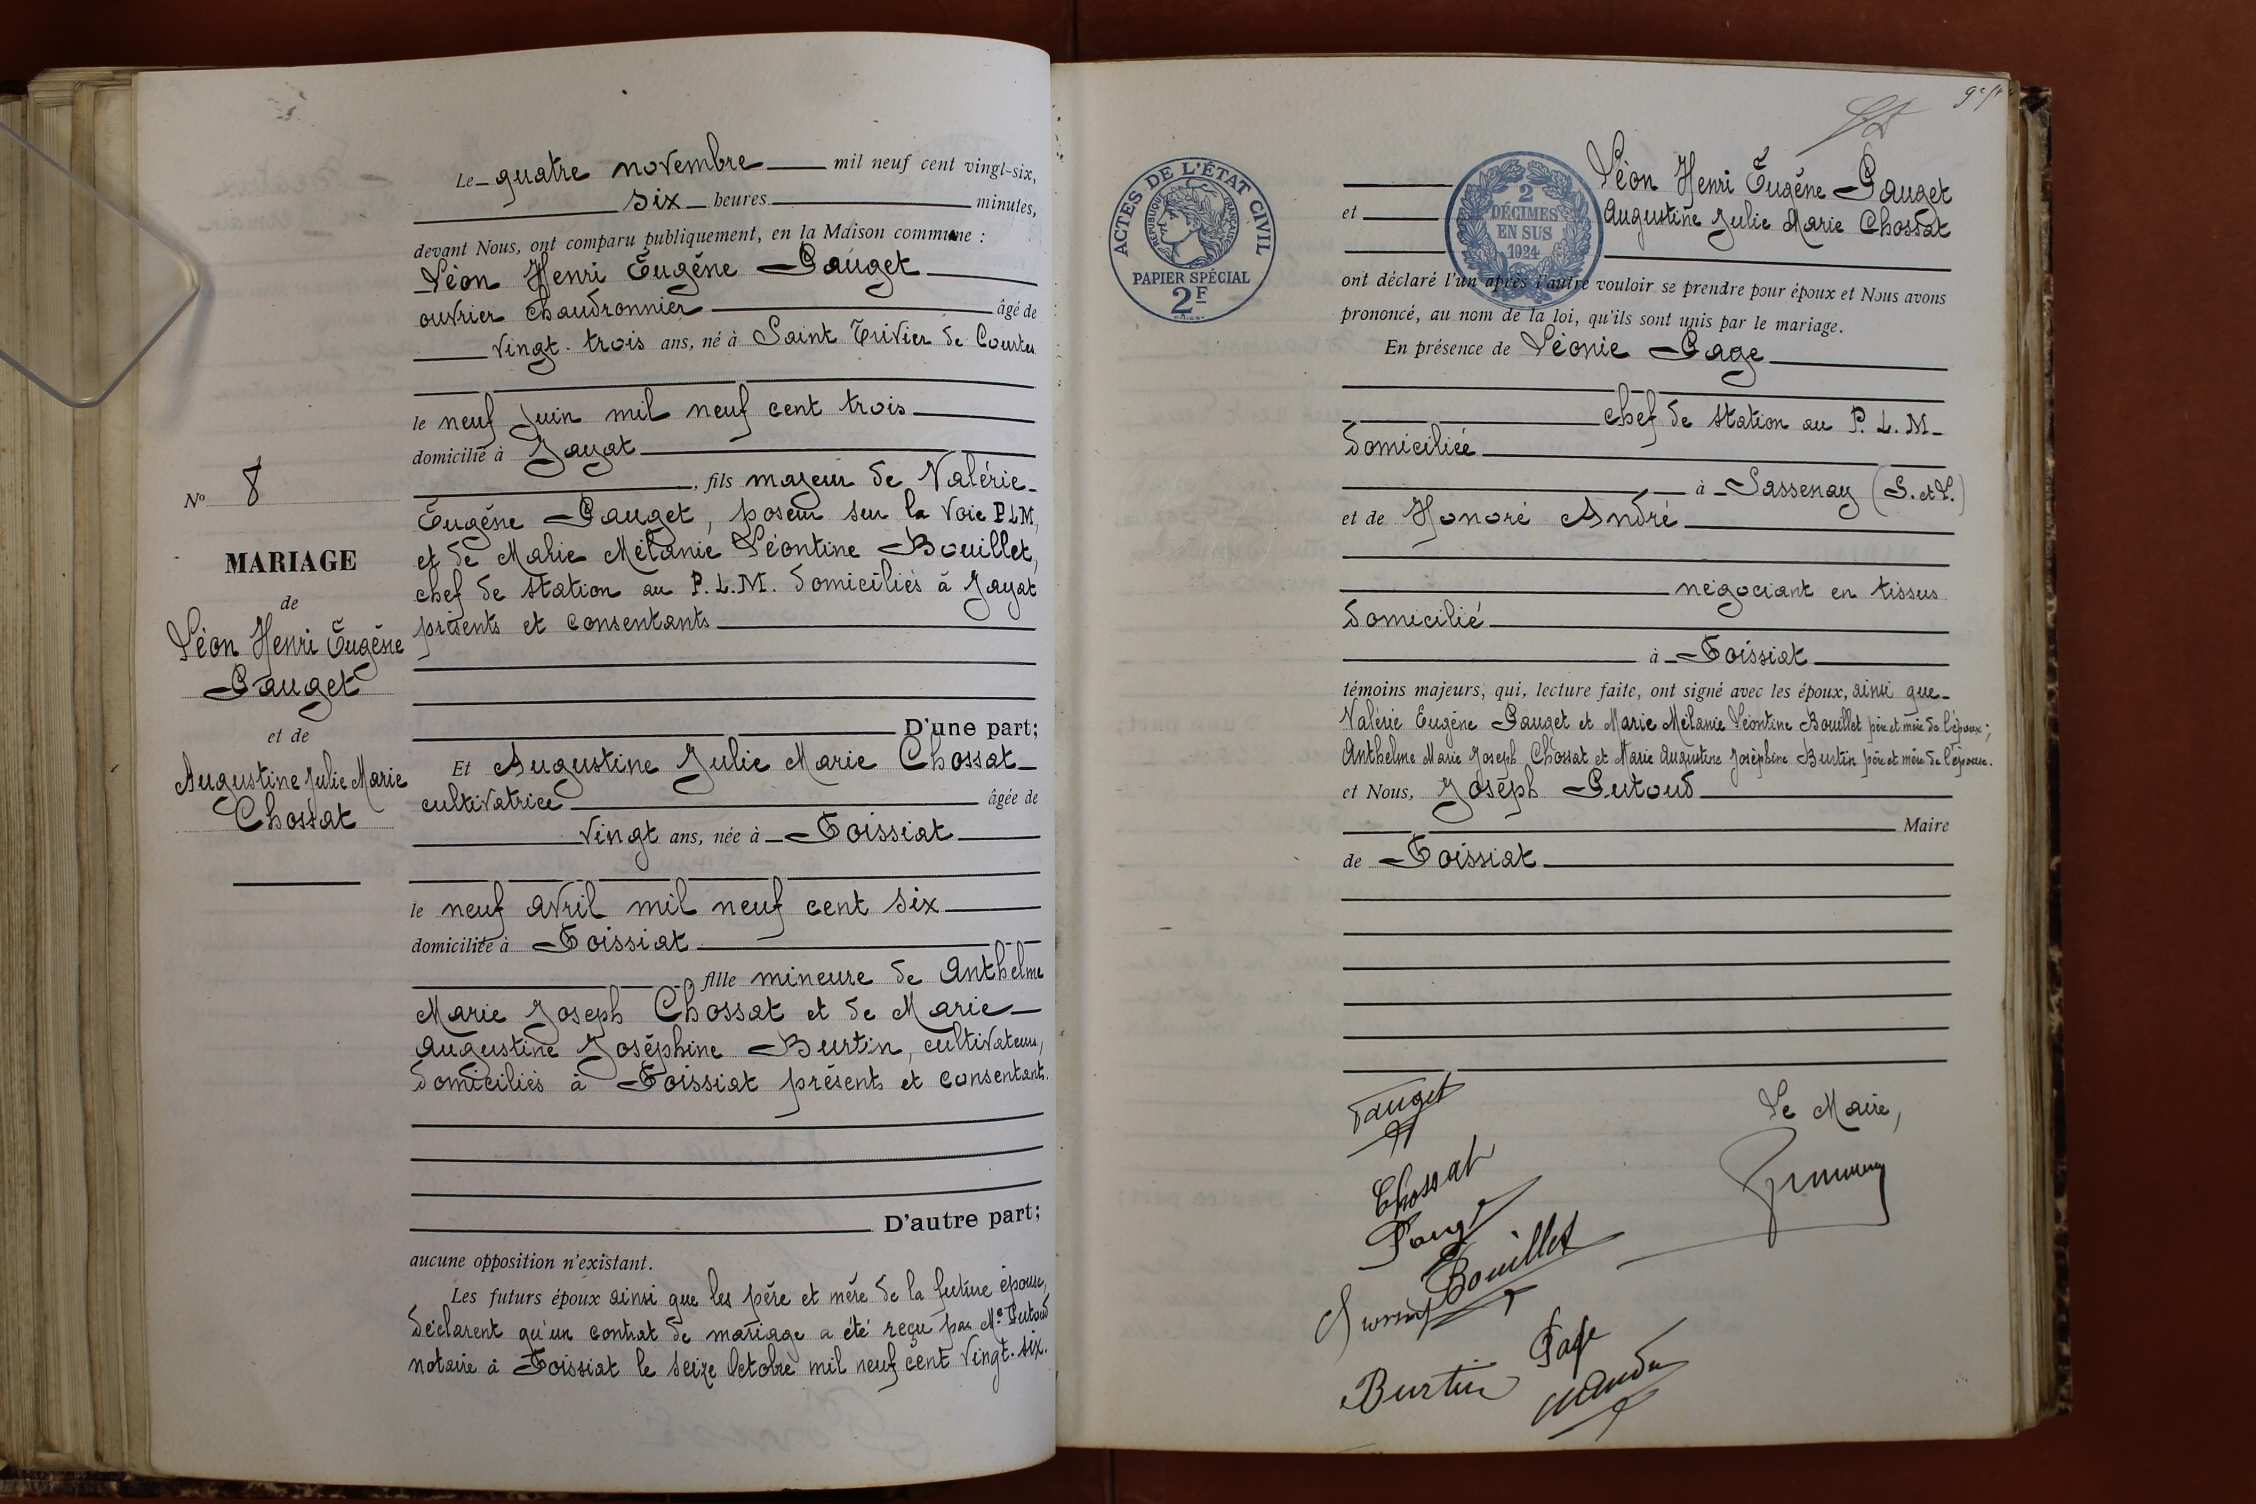 Le quatre novembre mil neuf cent vingt-six,
six heures minutes,
devant Nous, ont comparu publiquement, en la Maison commune :
Léon Henri Eugéne Pauget
ouvrier chaudronnier âgé de
vingt-trois ans, né à Saint Trivier de Courtes
le neuf juin mil neuf cent trois
domicilié à Jayat
, fils majeur de Valérie
Eugéne Pauget, poseur sur la voie PLM,
et de Marie Mélanie Léontine Bouillet,
chef de station au P.L.M. domiciliés à Jayat
présents et consentants
D'une part;
Et Augustine Julie Marie Chossat
cultivatrice âgée de
vingt ans, née à Foissiat
le neuf avril mil neuf cent six
domiciliée à Foissiat
fille mineure de Anthelme
Marie Joseph Chossat et de Marie
Augustine Joséphine Burtin, cultivateurs,
domiciliés à Foissiat présents et consentants.
D'autre part;
aucune opposition n'existant.
Les futurs époux ainsi que les pére et mére de la future épouse,
déclarent qu'un contrat de mariage a été reçu par Me Putoud
notaire à Foissiat le seize Octobre mil neuf cent vingt-six.
No 8
MARIAGE
de
Léon Henri Eugéne
Pauget
et de
Augustine Julie Marie
Chossat
ACTES DE L'ÉTAT CIVIL
RÉPUBLIQUE FRANÇAISE
PAPIER SPÉCIAL
2F
2
DÉCIMES
EN SUS
1924
Léon Henri Eugéne Pauget
et Augustine Julie Marie Chossat
ont déclaré l'un après l'autre vouloir se prendre pour époux et Nous avons
prononcé, au nom de la loi, qu'ils sont unis par le mariage.
En présence de Léonie Page
chef de station au P.L.M.
domiciliée
à Sassenay (S. et L.)
et de Honoré André
négociant en tissus
domicilié
à Foissiat
témoins majeurs, qui, lecture faite, ont signé avec les époux, ainsi que
Valérie Eugéne Pauget et Marie Mélanie Léontine Bouillet pére et mére de l'époux;
Anthelme Marie Joseph Chossat et Marie Augustine Joséphine Burtin pére et mére de l'épouse.
et Nous, Joseph Putoud
Maire
de Foissiat
Le Maire,
Pauget
Chossat
Bouillet
Page
Burtin